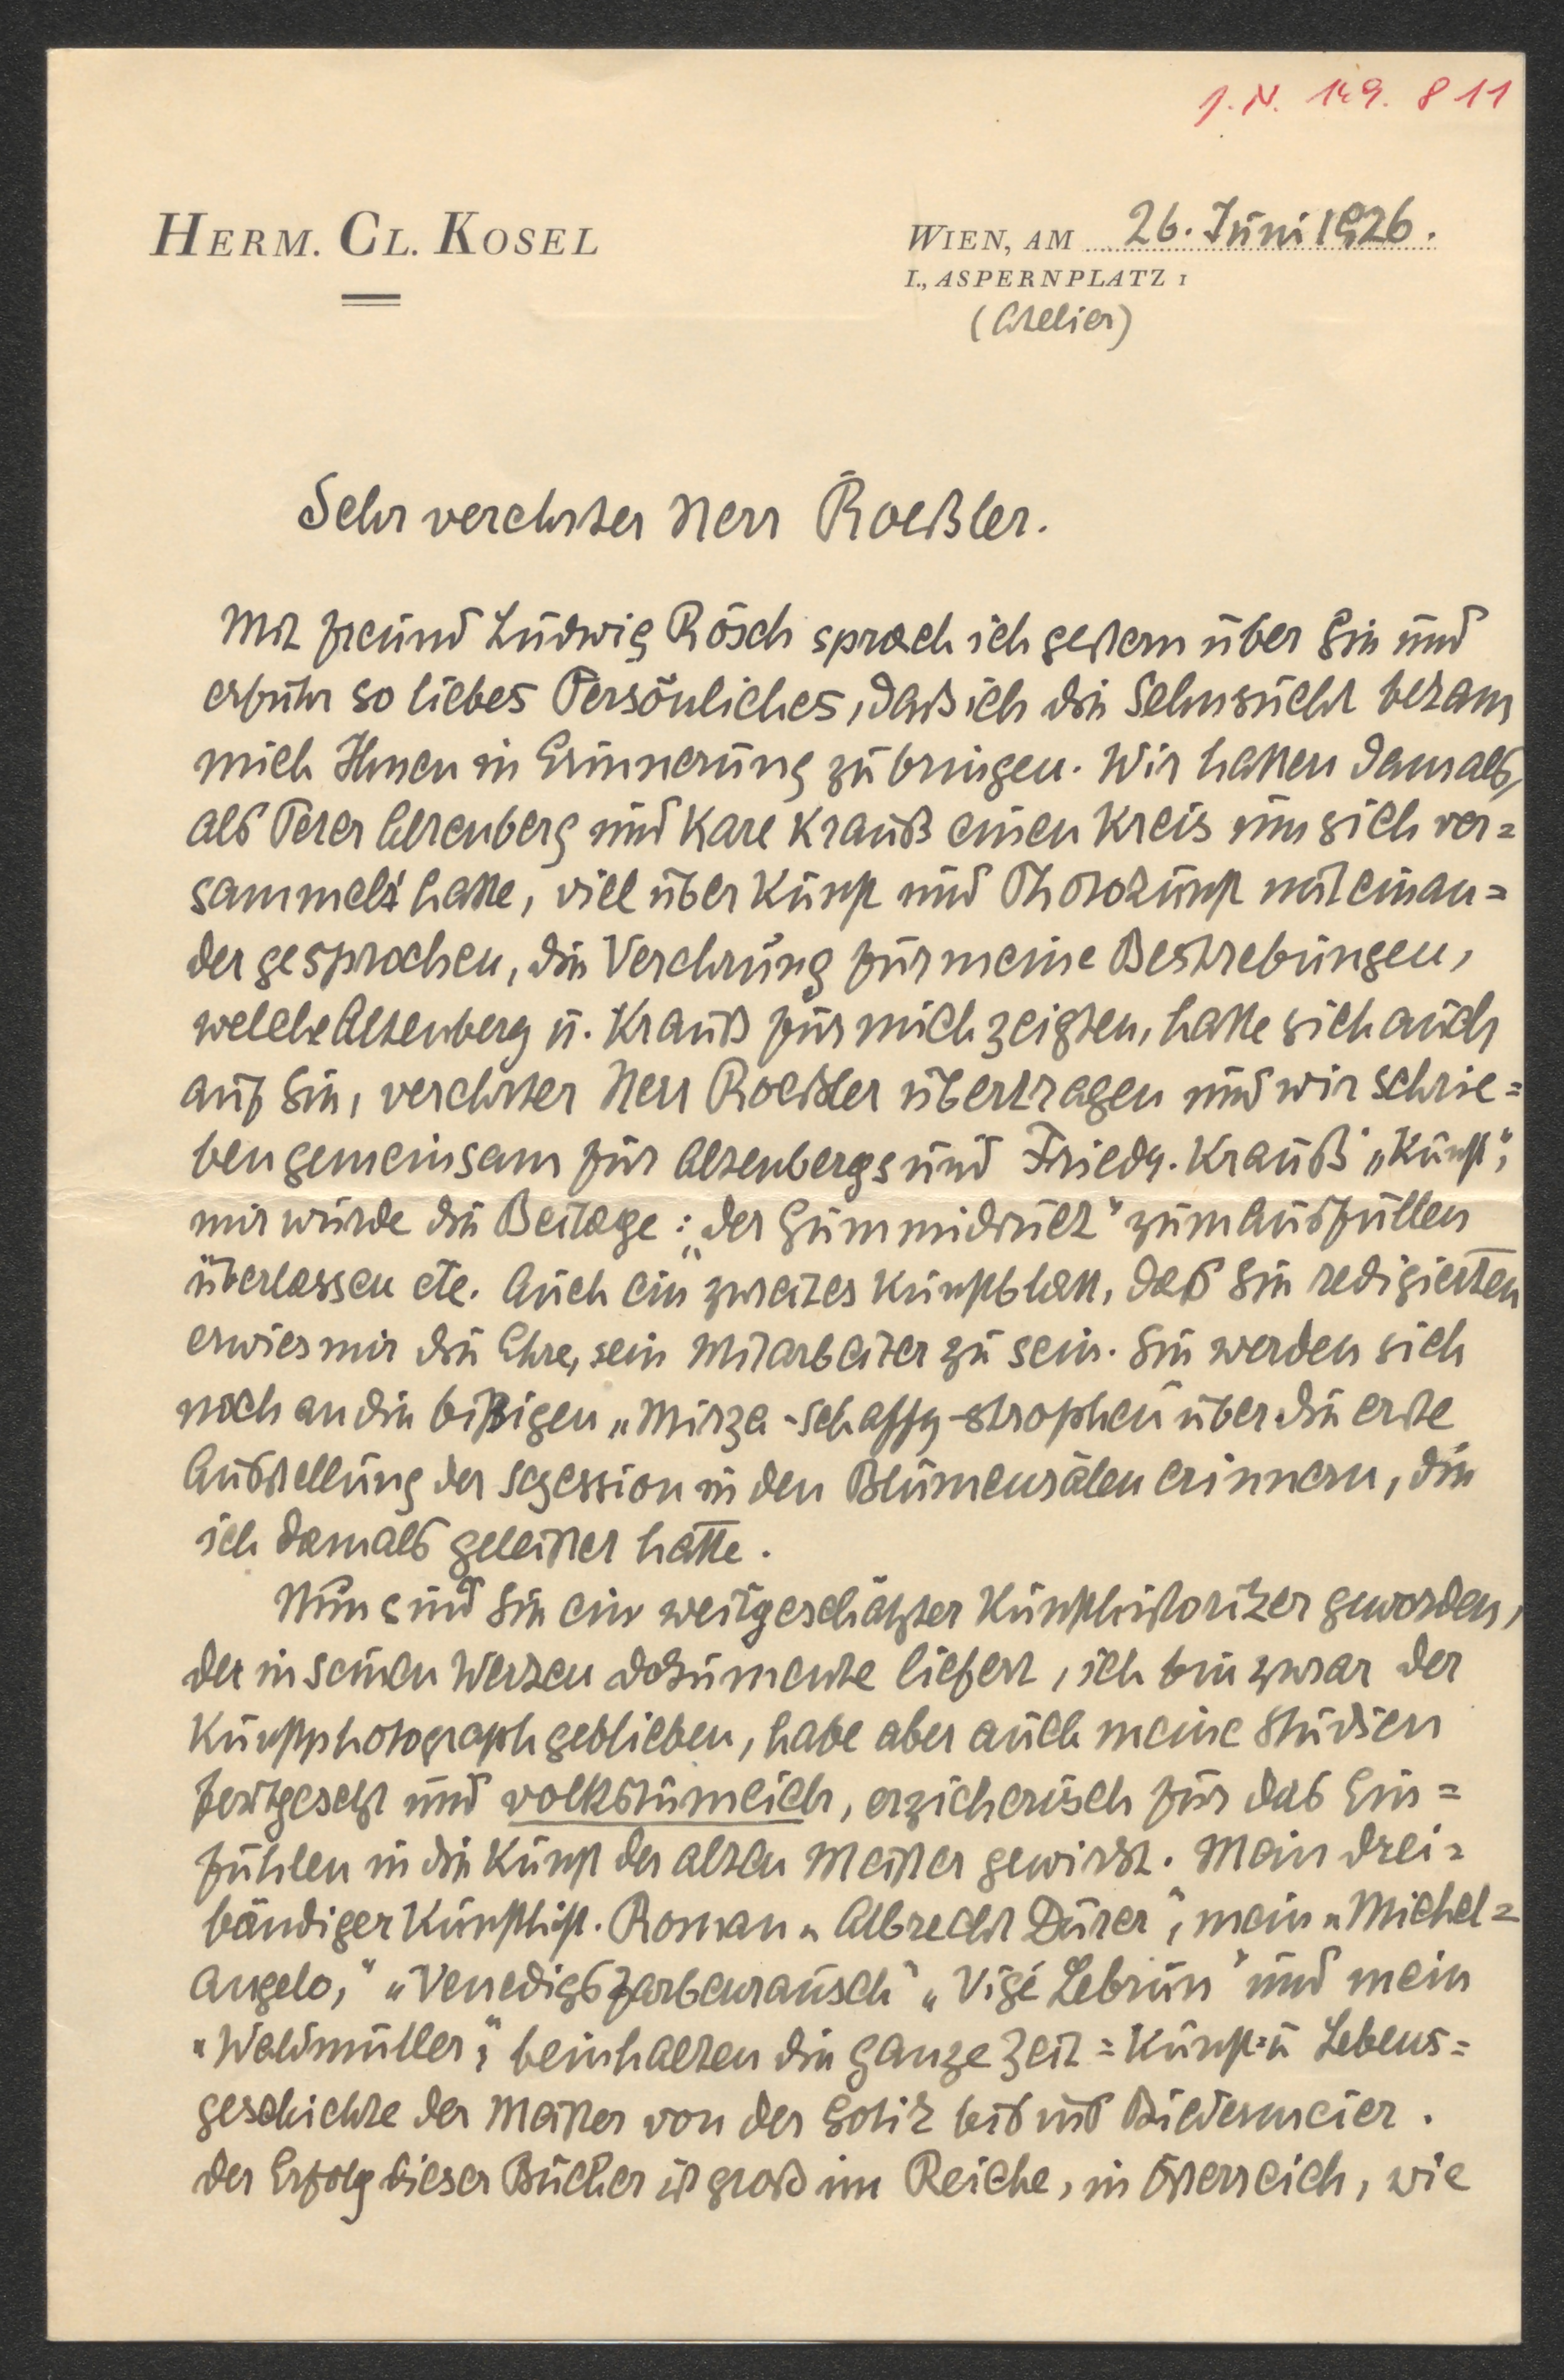 J. N. 149.811
HERM. CL. KOSEL
WIEN, AM 26. Juni 1926.
I., ASPERNPLATZ 1
(Atelier)
Sehr verehrter Herr Roeßler.
Mit Freund Ludwig Rösch sprach ich gestern über Sie und
erfuhr so liebes Persönliches, daß ich die Sehnsucht bekam
mich Ihnen in Erinnerung zu bringen. Wir hatten damals,
als Peter Altenberg und Karl Krauß einen Kreis um sich ver=
sammelt hatte, viel über Kunst und Photokunst miteinan=
der gesprochen, die Verehrung für meine Bestrebungen,
welche Altenberg u. Krauß für mich zeigten, hatte sich auch
auf Sie, verehrter Herr Roeßler übertragen und wir schrie=
ben gemeinsam für Altenbergs und Friedr. Krauß' „Kunst",
mir wurde die Beilage: „der Gummidruck" zum Ausfüllen
überlassen etc. Auch ein zweites Kunstblatt, daß Sie redigierten
erwies mir die Ehre, sein Mitarbeiter zu sein. Sie werden sich
noch an die bißigen „Mirza-Schaffy-strophen" über die erste
Ausstellung der Sezession in den Blumensälen erinnern, die
ich damals geleistet hatte.
Nun sind Sie ein weitgeschätzter Kunsthistoriker geworden,
der in seinen Werken Dokumente liefert, ich bin zwar der
Kunstphotograph geblieben, habe aber auch meine Studien
fortgesetzt und volkstümlich, erzieherisch für das Ein=
fühlen in die Kunst der alten Meister gewirkt. Mein drei=
bändiger Kunsthist. Roman „Albrecht Dürer", mein „Michel=
angelo," „Venedigs Farbenrausch" „Vigé Lebrun" und mein
„Waldmüller", beinhalten die ganze Zeit= Kunst= u Lebens=
geschichte der Meister von der Gotik bis ins Biedermeier.
Der Erfolg dieser Bücher ist groß im Reiche, in Österreich, wie